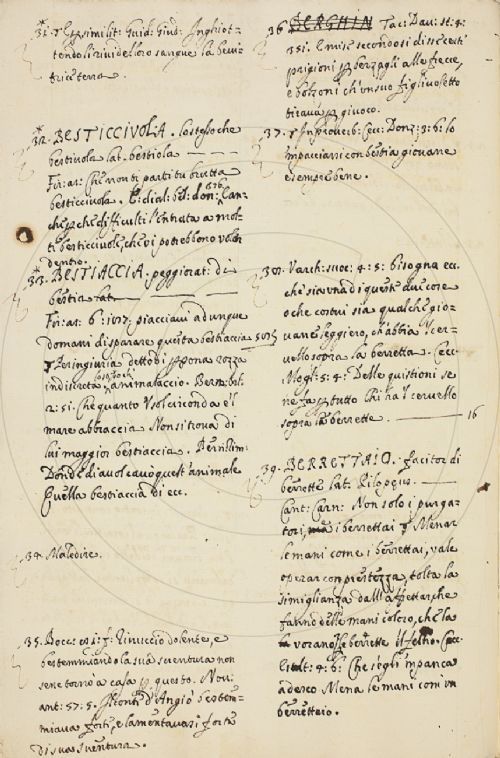 31. T E p similit: Guid: Giud: Inghiot=
tendo li rivi dello ro sangue la bevi=
trice terra.
32. BESTICCIVOLA. lo stesso che
bestivola lat. bestiola
Fir: as: Che non ti parti tu brutta
besticcivola.
che p che difficulti l'entrata a mol=
ti besticcivoli, che vi potrebbono volar
dentro.
33. BESTIACCIA. peggiorat: di
bestia lat.
Fir: as: 6: 187: piacciavi adunque
domani disparare questa bestiaccia
p ingiuria detto di persona rozza
indiscreta animalaccio. Bern: Orl:
2: 51: Che quanto 'l sol circonda e 'l
mare abbraccia. Non si trova di
lui maggior bestiaccia. Bern: rim:
Donde diavol cavò quest'animale
Quella bestiaccia di ecc.
34. Maledire.
35. Bocc: Rinuccio dolente, e
bestemmiando la sua sventura non
se ne tornò a casa p questo. Nov:
ant: 57: 5. Il Conte d'Angiò bestem=
miava forte, e lamentavasi forte
di sua sventura.
36. BERGHIN Taci: Dav: st: 4:
351. E mise secondo si disse certi
prigioni p berzagli alle frecce,
e bolzoni ch'un suo figlivoletto
tirava p giuoco.
37. T In proverb: Cecc: Donz: 3: 6: lo
impacciarsi con bestia giovane
è sempre bene.
38. Varch: suoc: 4: 5: bisogna ecc.
che sia una di queste due cose
o che costui sia qualche gio=
vane leggiero, ch'abbia 'l cer=
vello sopra la berretta. Cecc:
Mogl: 5: 4: Delle quistioni se
ne fa p tutto chi ha 'l cervello
sopra la berretta. 16
39. BERRETTAIO. facitor di
berrette lat. Pilopeus.
Cant: Carn: Non solo i purga=
tori, ma i berrettai T Menar
le mani come i berrettai, vale
operar con prestezza, tolta la
simiglianza dall'affettar che
fanno delle mani coloro, che la=
vorano le berrette
4: 6: Che s'egli impanca
adesso Mena le mani com'un
berrettaio.